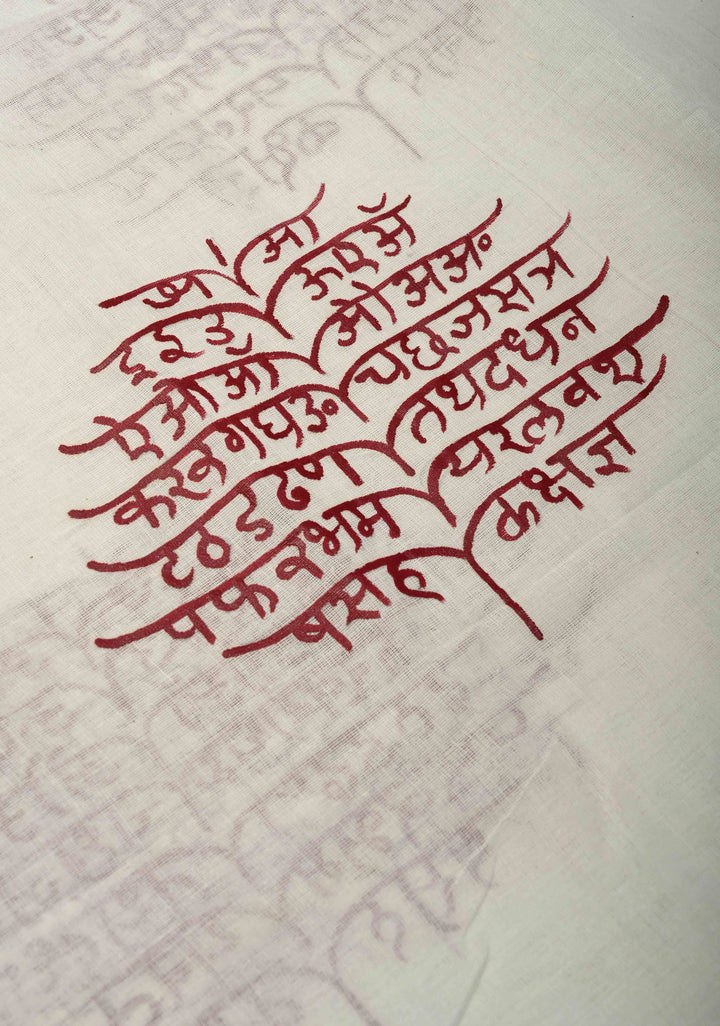 अ आ
इ ई उ ऊ ए अॅ
ऐ ओ ऑ ओ अ अं
क ख ग घ ङ च छ ज झ ञ
ट ठ ड ढ ण त थ द ध न
प फ ब भ म य र ल व श
ष स ह क्ष ज्ञ